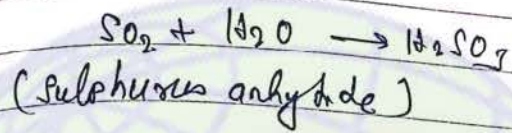 SO₂ + H₂O ⟶ H₂SO₃
(Sulphurus anhydride)